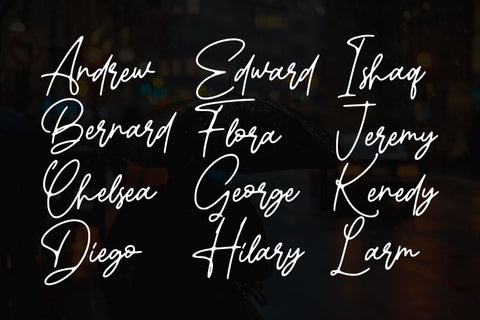 Andrew Edward Ishaq
Bernard Flora Jeremy
Chelsea George Kenedy
Diego Hilary Larm